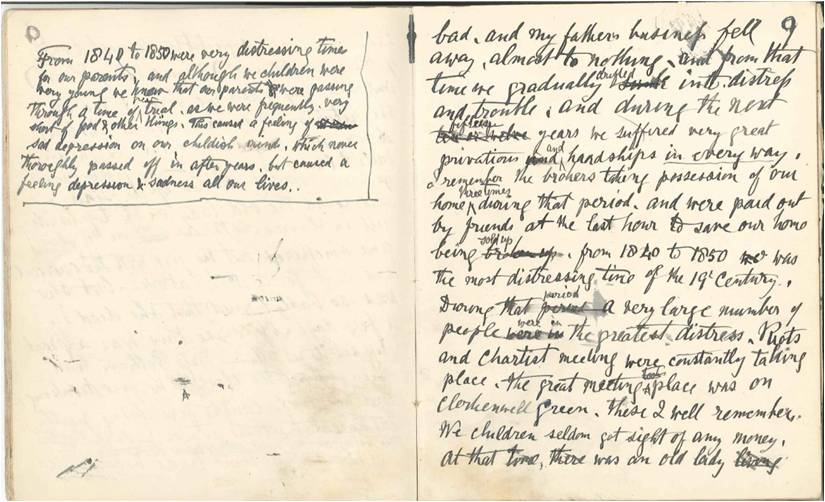 9
From 1840 to 1850 were very distressing times
for our parents, and although we children were
very young we know that our parents were passing
through a time of trial. as we were frequently. very
short of food & other things. This caused a feeling of
sad depression on our childish minds. which never
thoroghly passed off in after years. but caused a
feeling depression & sadness all our lives..
9
bad. and my fathers business fell
away. almost to nothing. and from that
time we gradually drifted into distress
and trouble. and during the next
years we suffered very great
privations and hardships in every way.
I remember the brokers taking possession of our
home three times during that period. and were paid out
by friends at the last hour to save our home
being sold up. from 1840 to 1850 was
the most distressing time of the 19t Century.
During that period a very large number of
people were in the greatest distress. Riots
and Chartist meeting were constantly taking
place. the great meeting took place was on
Clerkenwell Green. these I well remember.
We children seldom got sight of any money.
at that time, there was an old lady living